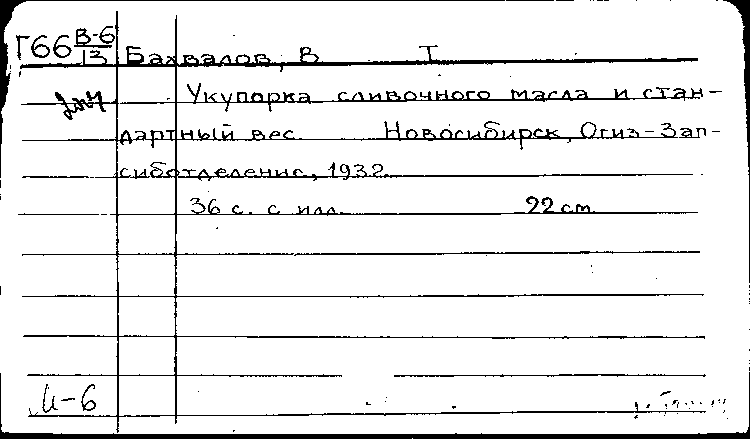 Г66 В-6/13 Бахвалов, В Т
Укупорка сливочного масла и стан-
дартный вес. Новосибирск, Огиз-Зап-
сиботделение, 1932.
36 с. с илл. 22 см.
И-6